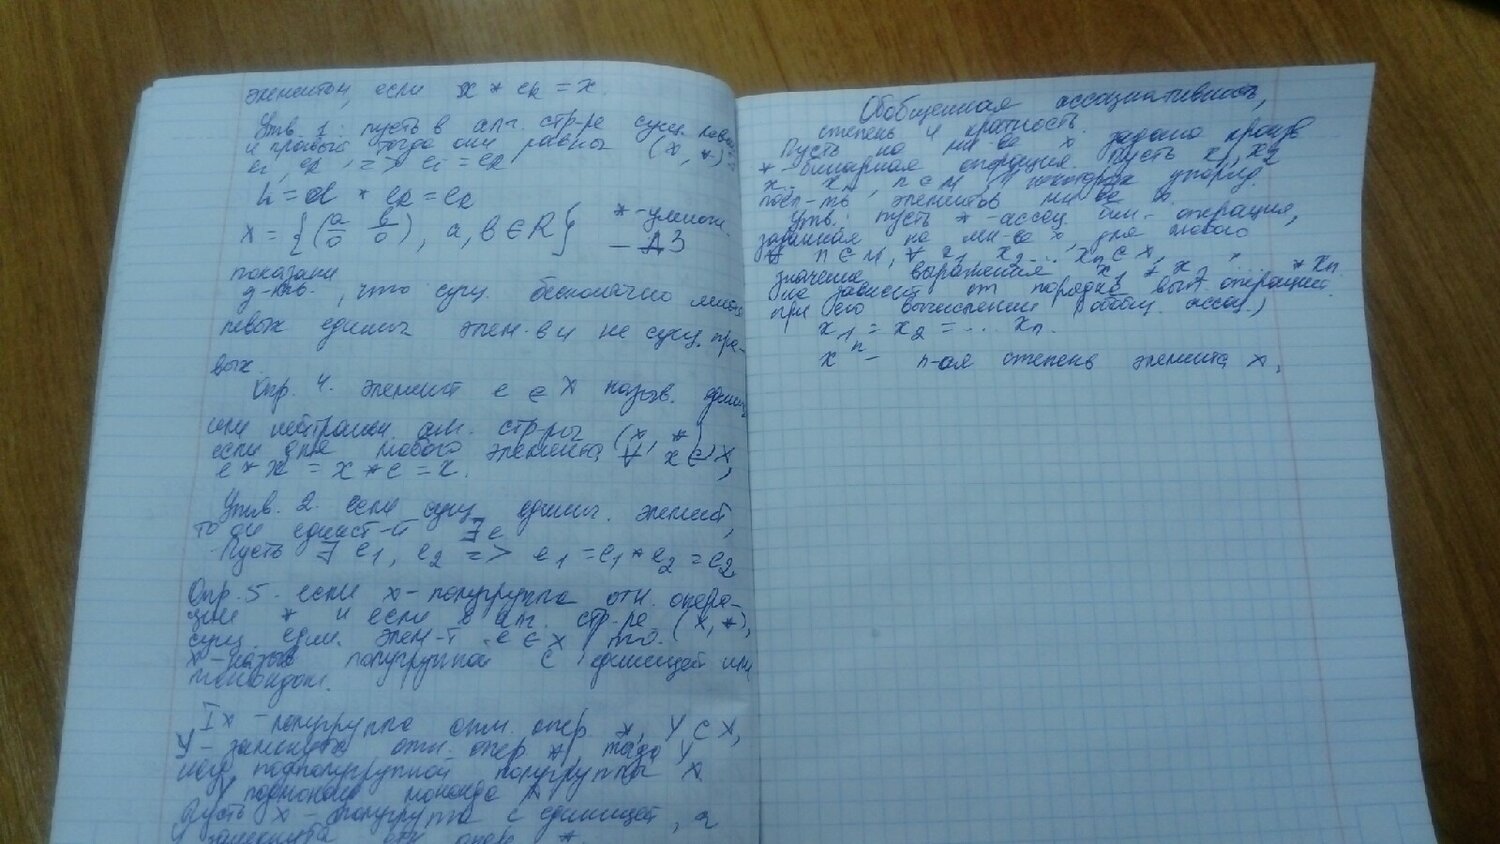 элементом, если x * eR = x.
Утв. 1: пусть в алг. стр-ре сущ. левый
и правый тогда они равны (X, *)
el, eR, => el = eR
el * eR = eR
X = {(a b / 0 0), a, b ∈ R} * - умнож.
- ДЗ
показать
д-ть, что сущ. бесконечно много
левых единич. элем-в и не сущ. пра-
вых.
Опр. 4. элемент e ∈ X назыв. единич
или нейтральн. алг. стр-ры (X, *)
если для любого элемента ∀ x ∈ X,
e * x = x * e = x.
Утв. 2 если сущ. единич. элемент,
то он единст-й ∃ e
Пусть ∃ e1, e2 => e1 = e1 * e2 = e2
Опр. 5. если X - полугруппа отн. опера-
ции * и если в алг. стр-ре (X, *),
сущ. един. элем-т e ∈ X, то
X - назыв полугруппой с единицей или
моноидом.
X - полугруппа отн. опер *, Y ⊂ X,
Y - замкнуто отн. опер *, тогда Y
назыв. подполугруппой полугруппы X
Y подмоноид моноида X
Пусть X - полугруппа с единицей, а
замкнута отн опер *
Обобщенная ассоциативность,
степень и кратность.
Пусть на мн-ве X задана произв
* - бинарная операция. Пусть x1, x2
x... xn, n ∈ N, некоторая упоряд.
посл-ть элементов мн-ва X.
Утв.: пусть * - ассоц. бин. операция,
заданная на мн-ве X, для любого
∀ n ∈ N, ∀ x1, x2... xn ∈ X,
значение выражения x1 * x2 ... * xn
не зависит от порядка вып. операций
при его вычислении (обобщ. ассоц.)
x1 = x2 = ... xn.
x^n - n-ая степень элемента x,